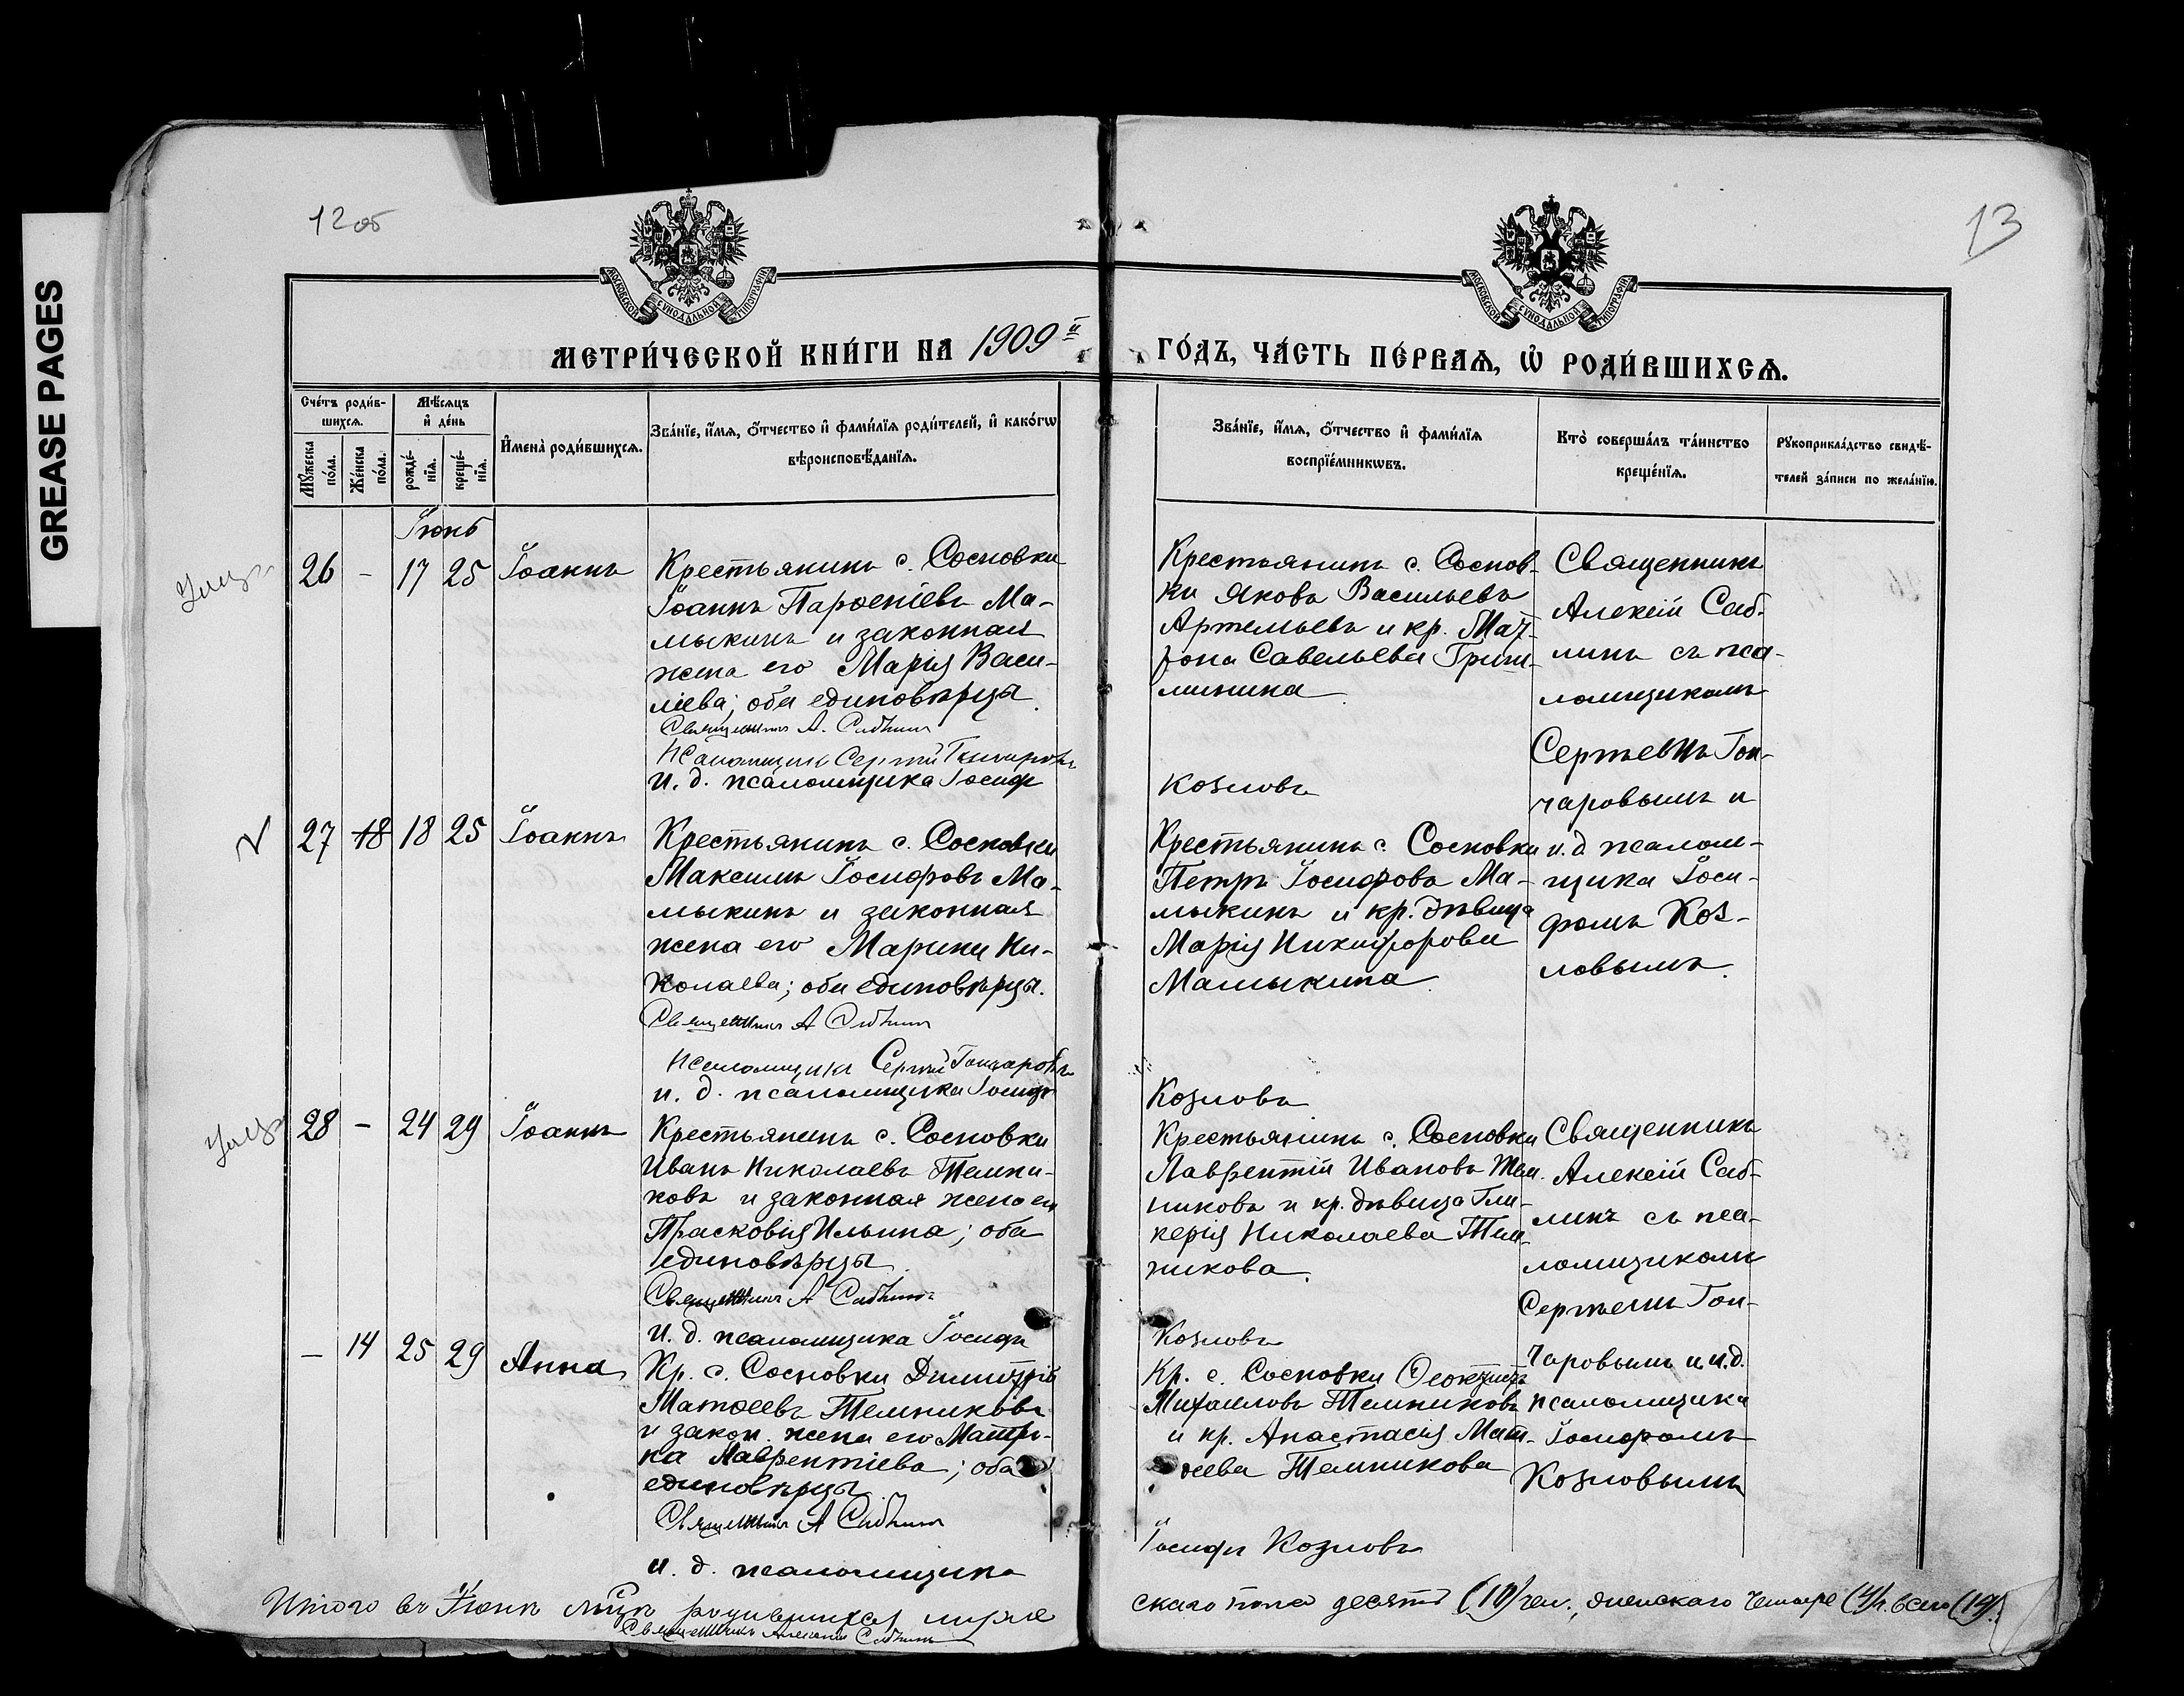 GREASE PAGES
12 об
13
МОСКОВСКОЙ СѴНОДАЛЬНОЙ ТИПОГРАФІИ
МОСКОВСКОЙ СѴНОДАЛЬНОЙ ТИПОГРАФІИ
МЕТРИ́ЧЕСКОЙ КНИ́ГИ НА 1909й
ГО́ДЪ, ЧА́СТЬ ПЕ́РВАѦ, Ѡ҆ РОДИ́ВШИХСѦ.
Сче́тъ роди́в-
шихсѧ.
Мѣ́сѧцъ
и҆ де́нь
Мꙋ́жеска
по́ла.
Же́нска
по́ла.
рожде́-
нїѧ.
креще́-
нїѧ.
И҆мена̀ роди́вшихсѧ.
Зва́нїе, и҆́мѧ, ѻ҆́тчество и҆ фами́лїѧ роди́телей, и҆ како́гѡ
вѣроисповѣ́данїѧ.
Зва́нїе, и҆́мѧ, ѻ҆́тчество и҆ фами́лїѧ
воспрїе́мникѡвъ.
Кто̀ соверша́лъ та́инство
креще́нїѧ.
Рꙋкоприкла́дство свидѣ́-
телей за́писи по жела́нїю.
Іюнь
26 - 17 25 Іоаннъ
Крестьянинъ с. Сосновки
Іоаннъ Парѳеніевъ Ма-
мыкинъ и законная
жена его Марія Васи-
ліева; оба единовѣрцы.
Священникъ А. Саблинъ
Псаломщикъ Сергій Гончаровъ
И. д. псаломщика Іосифъ
Крестьянинъ с. Соснов-
ки Яковъ Васильевъ
Артемьевъ и кр. Мат-
рона Савельева
Козловъ
Священникъ
Алексій Саб-
линъ съ пса-
ломщикомъ
Сергіемъ Гон-
чаровымъ и
и. д. псалом-
щика Іоси-
фомъ Коз-
ловымъ.
27 18 18 25 Іоаннъ
Крестьянинъ с. Сосновки
Максимъ Іосифовъ Ма-
мыкинъ и законная
жена его Марина Ни-
колаева; оба единовѣрцы.
Священникъ А Саблинъ
Псаломщикъ Сергій Гончаровъ
и. д. псаломщика Іосифъ
Крестьянинъ с. Сосновки
Петръ Іосифовъ Ма-
мыкинъ и кр. дѣвица
Марія Никифорова
Мамыкина.
Козловъ
28 - 24 29 Іоаннъ
Крестьянинъ с. Сосновки
Иванъ Николаевъ Темни-
ковъ и законная жена ег
Прасковія Ильина; оба
единовѣрцы.
Священникъ А Саблинъ
И. д. псаломщика Іосифъ
Крестьянинъ с. Сосновки
Лаврентій Ивановъ Тем-
никовъ и кр. дѣвица Гли-
керія Николаева Тем-
никова.
Козловъ
Священникъ
Алексій Саб-
линъ съ пса-
ломщикомъ
Сергіемъ Гон-
чаровымъ и и. д.
псаломщика
Іосифомъ
Козловымъ
- 14 25 29 Анна
Кр. с. Сосновки Димитрій
Матѳеевъ Темниковъ
и закон. жена его Матро-
на Лаврентіева; оба
единовѣрцы
Священникъ А Саблинъ
и. д. псаломщика
Кр. с. Сосновки Ѳеоктистъ
Михаиловъ Темниковъ
и кр. Анастасія Мат-
ѳеева Темникова
Іосифъ Козловъ
Итого въ Іюнѣ мѣсяцѣ родившихся муже
скаго пола десять (10) чел., женскаго четыре (4)
Священникъ Алексій Саблинъ